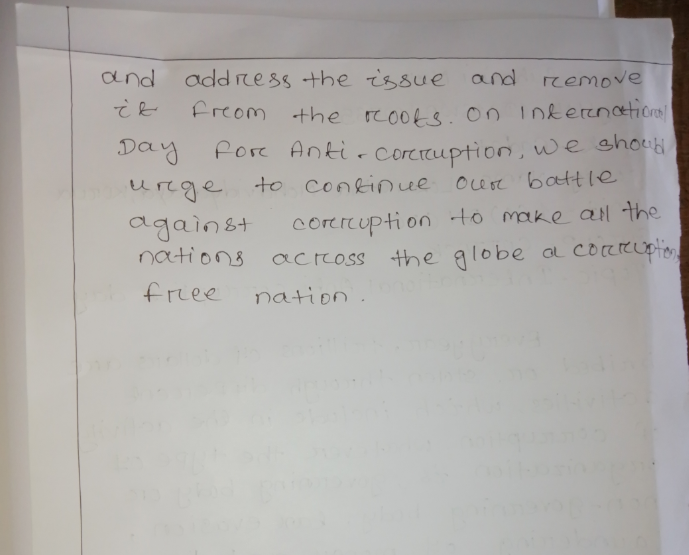 and address the issue and remove
it from the roots. On International
Day for Anti-corruption, we should
urge to continue our battle
against corruption to make all the
nations across the globe a corruption
free nation.